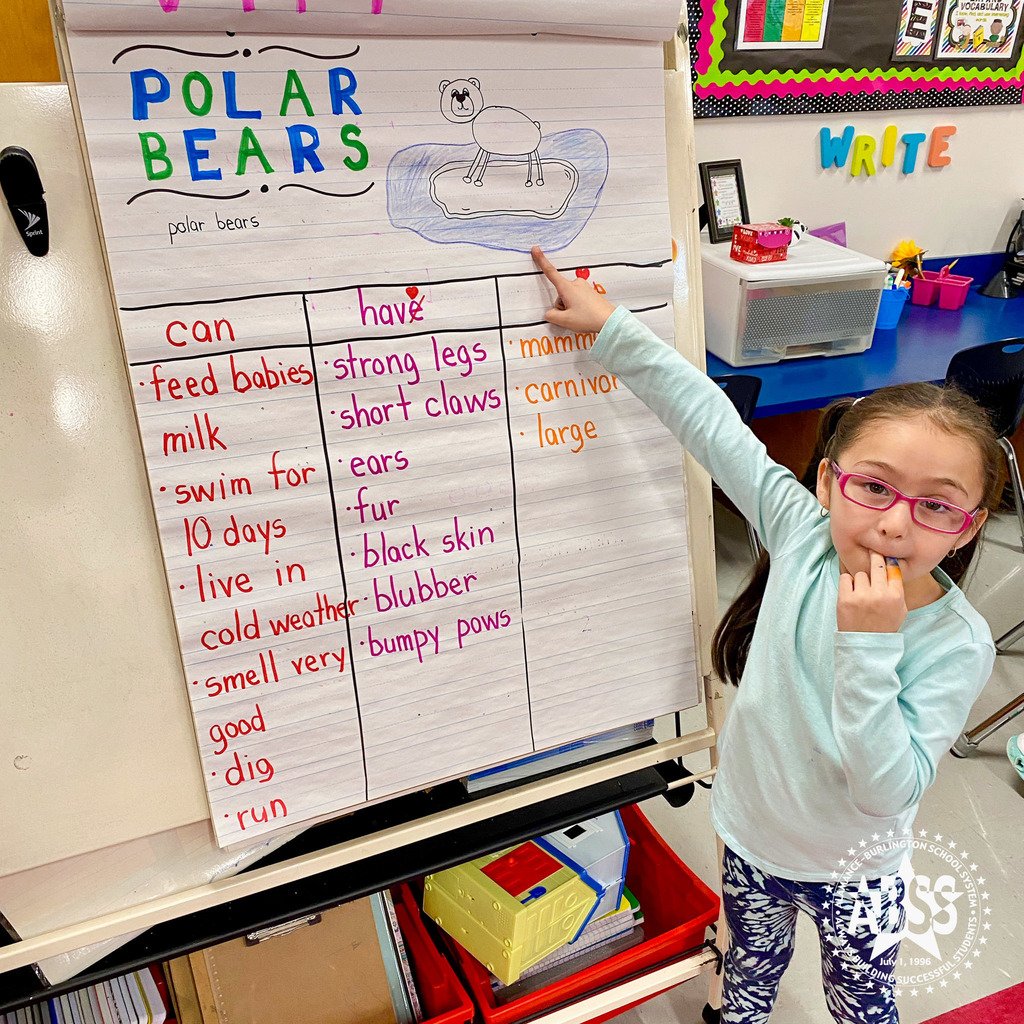 POLAR
BEARS
polar bears
can
have
feed babies
milk
swim for
10 days
live in
cold weather
smell very
good
dig
run
strong legs
short claws
ears
fur
black skin
blubber
bumpy pows
large
WRITE
VOCABULARY
Sprint
ABSS
July 1, 1996
BUILDING SUCCESSFUL STUDENTS